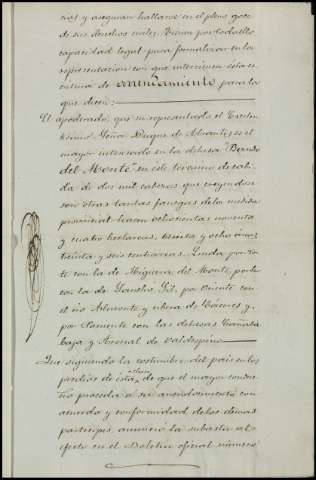 cios y aseguran hallarse en el pleno goce
de sus derechos civiles. Tienen por todo ello
capacidad legal para formalizar en la
representacion con que intervienen esta es-
critura de arrendamiento para la
que dicen:
El apoderado, que su representado el Excelen-
tisimo Señor Duque de Abrantes, es el
mayor interesado en la dehesa "Berrocal
del Monte" en este término de cabi-
da de dos mil cabezas que
son otras tantas fanegas de la medida
provincial hacen ochocientas noventa
y cuatro hectareas, treinta y ocho áreas
treinta y seis centiareas. Linda por Nor-
te con la de Higuera del Monte, por
con la de Sancho Gil, por Oriente con
el rio Almonte y ribera de Cáceres y
por Poniente con las dehesas
baja y Arenal de Valdespino.
Que siguiendo la costumbre del pais en los
predios de esta clase de que el mayor condue-
ño proceda á su arrendamiento con
acuerdo y conformidad de los demas
participes, anunció la subasta al
efecto en el Boletin oficial número